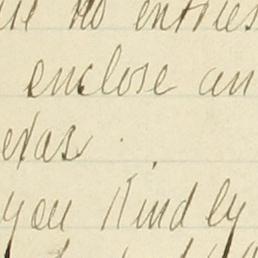 no entries
enclose an
exas.
you Kindly